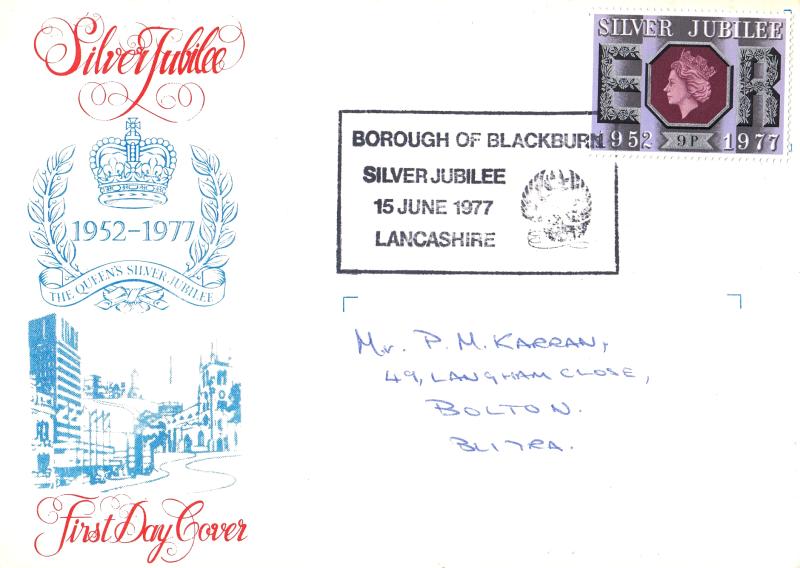 Silver Jubilee
1952-1977
THE QUEEN'S SILVER JUBILEE
First Day Cover
SILVER JUBILEE
E R
1952 9P 1977
BOROUGH OF BLACKBURN
SILVER JUBILEE
15 JUNE 1977
LANCASHIRE
Mr. P. M. KARRAN,
49, LANGHAM CLOSE,
BOLTON.
BL1 7RA.